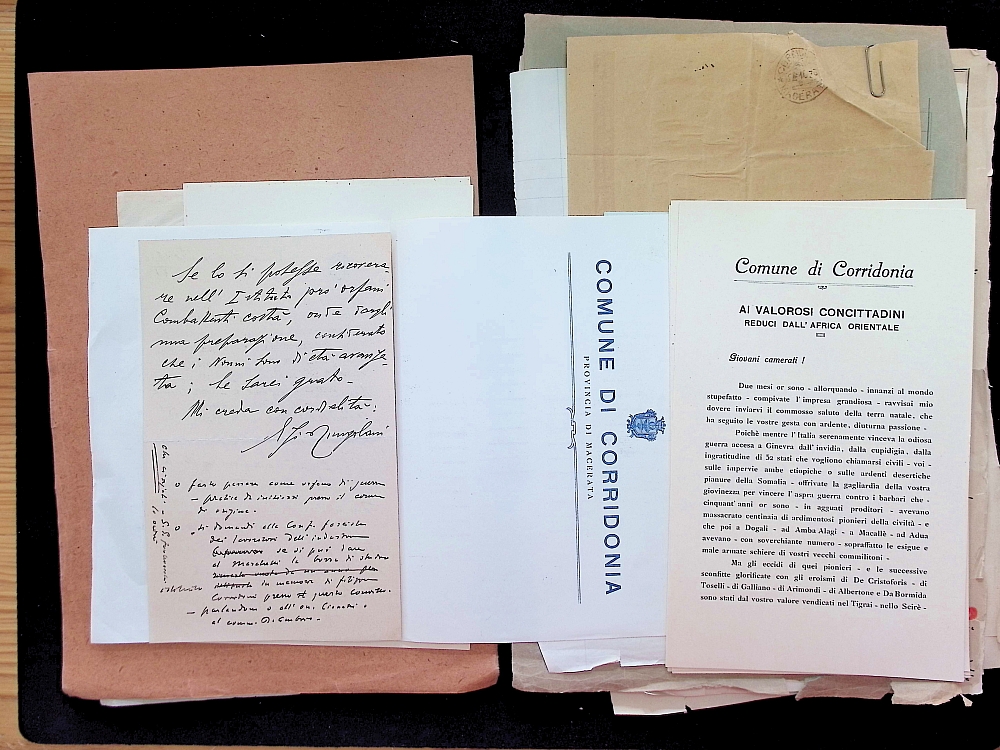 Se lo si potesse ricovera-
re nell'Istituto pro' orfani
Combattenti costà, onde dargli
una preparazione, considerato
che i Nonni sono di età avanza-
ta; Le sarei grato-
Mi creda con cordialità:
come orfano di guerra
di origine.
si domandi alla Conf. fascista
dei lavoratori dell'industria
se si può dare
al la borsa di studio
in memoria di Filippo
Corridoni presso questo
COMUNE DI CORRIDONIA
PROVINCIA DI MACERATA
Comune di Corridonia
AI VALOROSI CONCITTADINI
REDUCI DALL'AFRICA ORIENTALE
Giovani camerati !
Due mesi or sono - allorquando - innanzi al mondo
stupefatto - compivate l'impresa grandiosa - ravvisai mio
dovere inviarvi il commosso saluto della terra natale, che
ha seguito le vostre gesta con ardente, diuturna passione -
Poichè mentre l'Italia serenamente vinceva la odiosa
guerra accesa a Ginevra dall'invidia, dalla cupidigia, dalla
ingratitudine di 52 stati che vogliono chiamarsi civili - voi -
sulle impervie ambe etiopiche o sulle ardenti desertiche
pianure della Somalia - offrivate la gagliardia della vostra
giovinezza per vincere l'aspra guerra contro i barbari che -
cinquant'anni or sono - in agguati proditori - avevano
massacrato centinaia di ardimentosi pionieri della civiltà - e
che poi a Dogali - ad Amba Alagi - a Macallè - ad Adua
avevano - con soverchiante numero - sopraffatto le esigue e
male armate schiere di vostri vecchi commilitoni -
Ma gli eccidi di quei pionieri - e le successive
sconfitte glorificate con gli eroismi di De Cristoforis - di
Toselli - di Galliano - di Arimondi - di Albertone e Da Bormida
sono stati dal vostro valore vendicati nel Tigrai - nello Scirè -